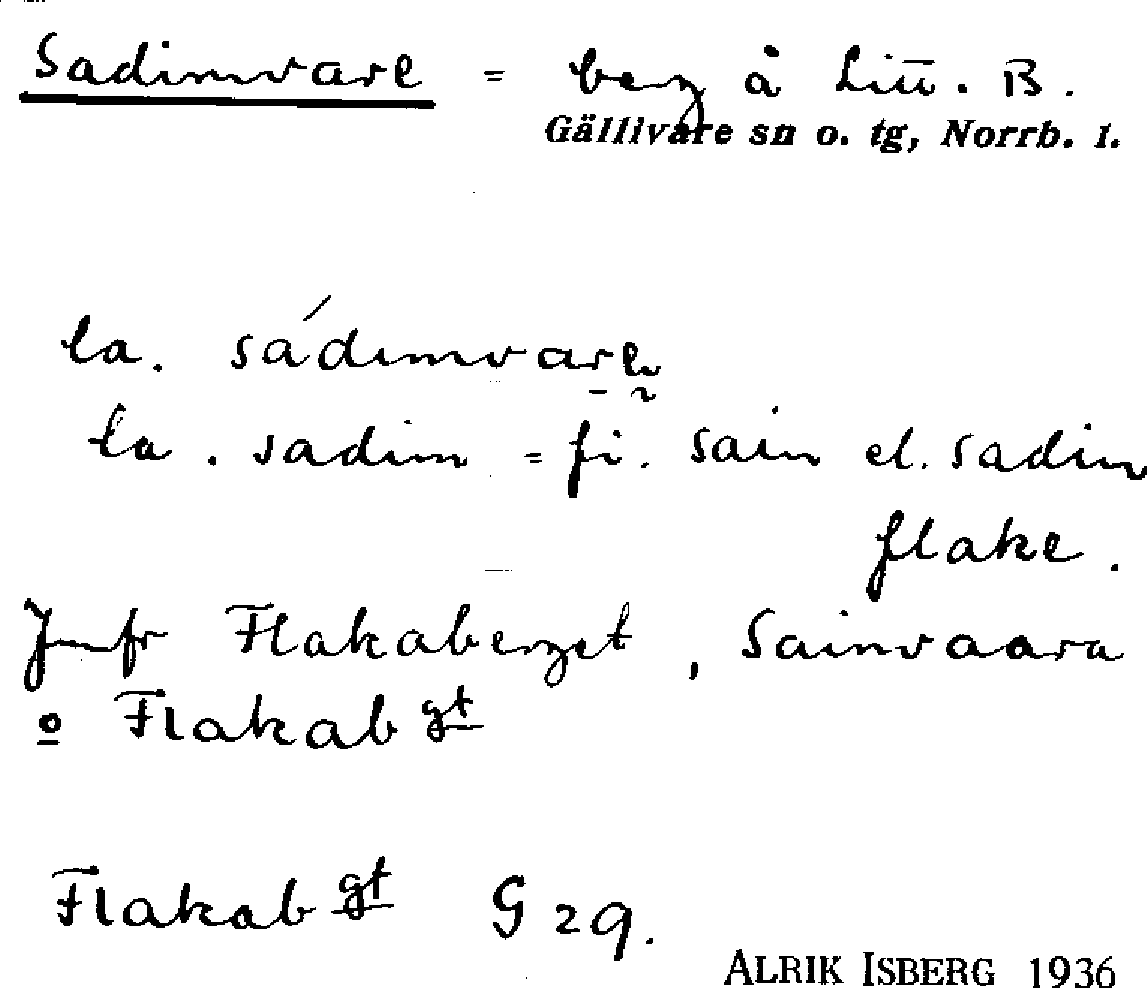 Sadimvare = berg å Litt. B.
Gällivare sn o. tg, Norrb. l.
la. sádimvare
la. sadim = fi. sain el. sadim
flake.
Jmfr Flakaberget, Sainvaara
o Flakabgt
Flakabgt G 29.
ALRIK ISBERG 1936